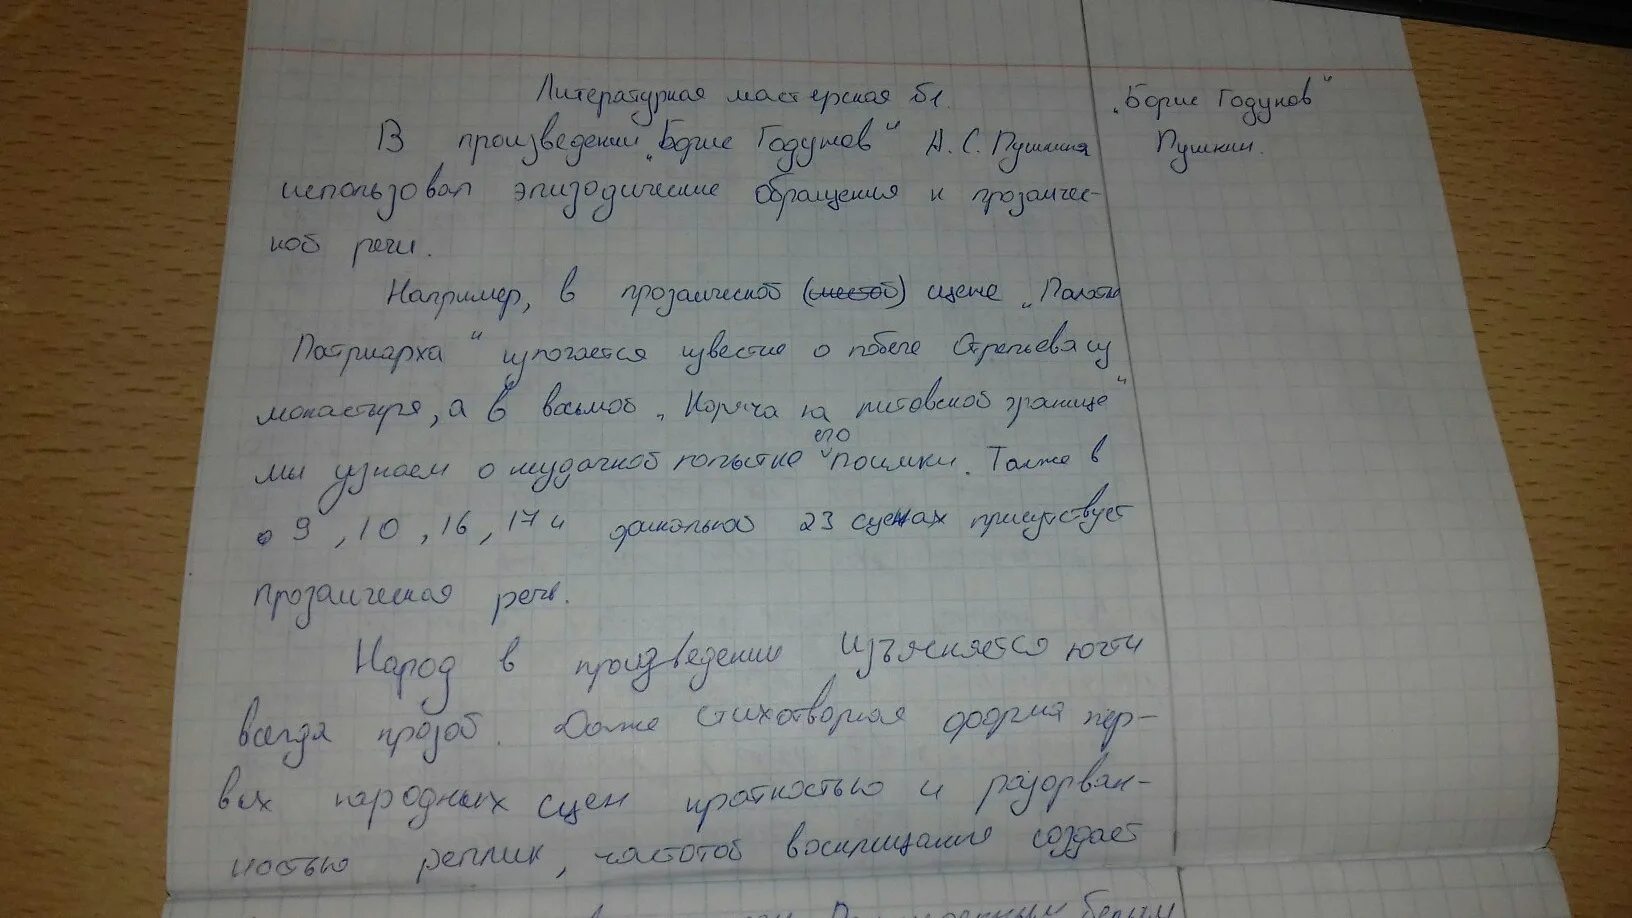 Литературная мастерская Б1.
„Борис Годунов"
Пушкин.
В произведении „Борис Годунов" А.С. Пушкина
использовал эпизодические обращения к прозаичес-
кой речи.
Например, в прозаической (шестой) сцене „Палаты
Патриарха" излогается известие о побеге Отрепьева из
монастыря, а в восьмой „Корчма на литовской границе"
мы узнаем о неудачной попытке его поимки. Также в
9, 10, 16, 17 и финальной 23 сценах присутствует
прозаическая речь.
Народ в произведении изъясняется почти
всегда прозой. Даже стихотворная форма пер-
вых народных сцен краткостью и разорван-
ностью реплик, частотой восклицания создает
белым